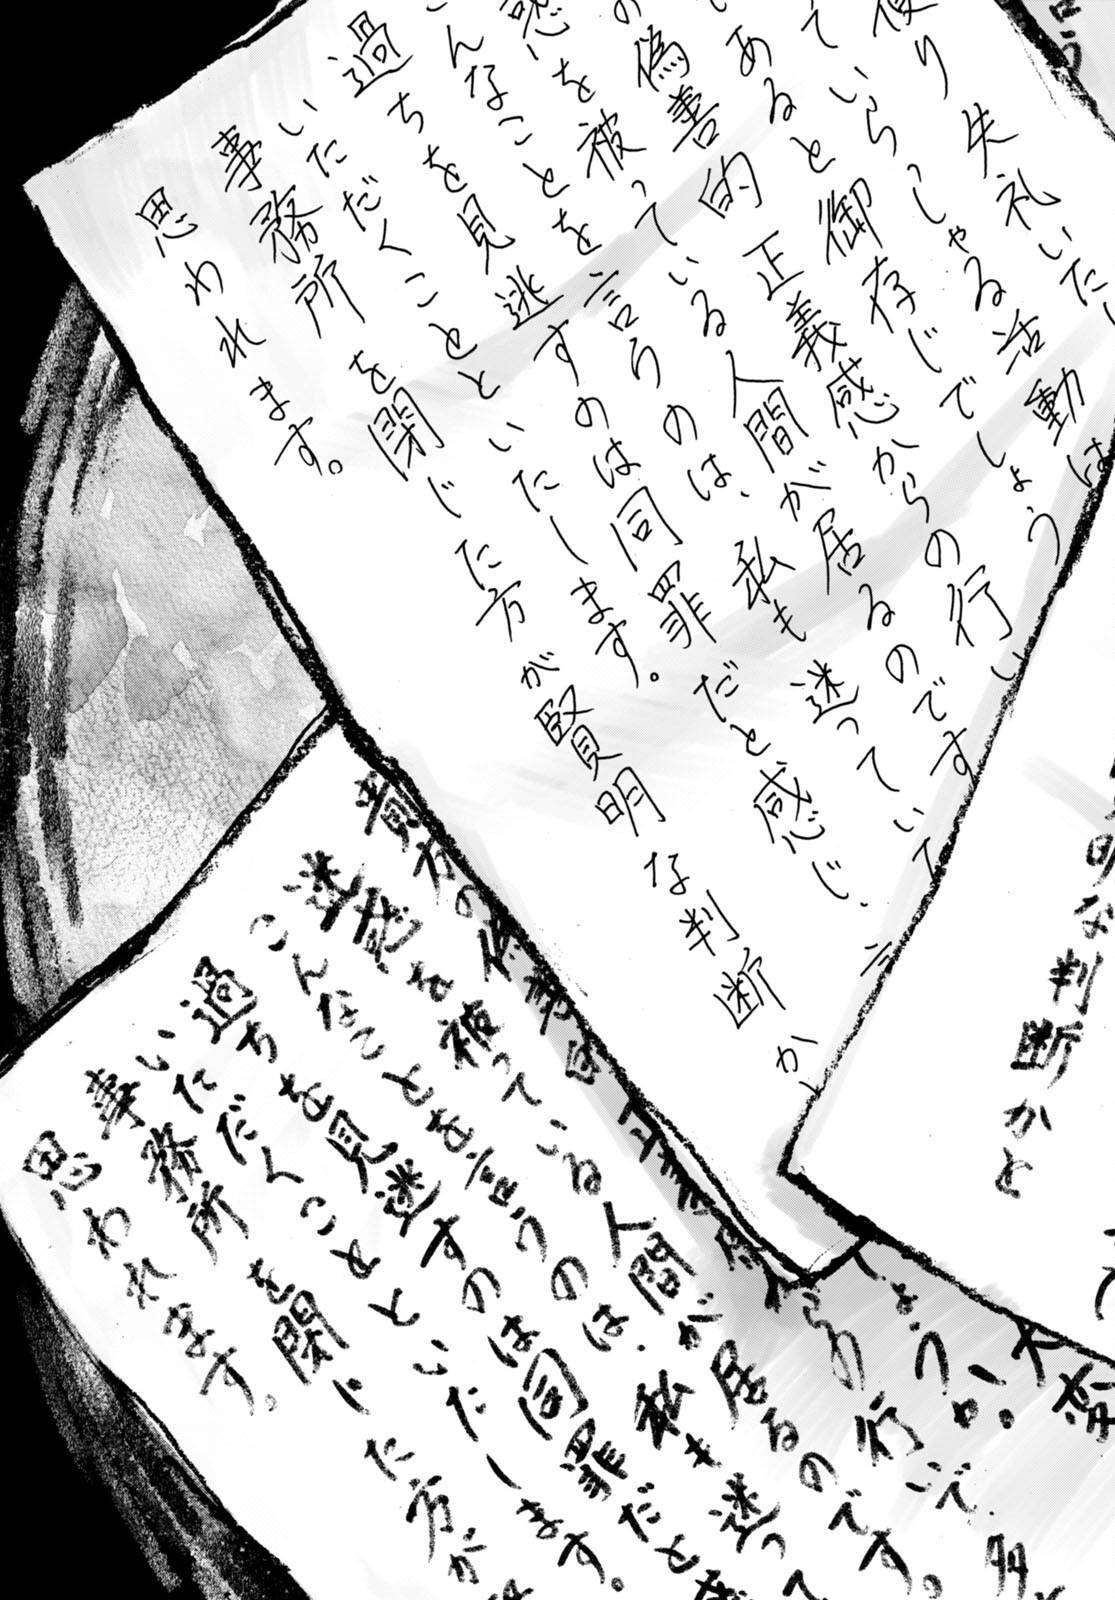 便り失礼いた
ていらっしゃる活動は
であると御存じでしょう
の偽善的正義感からの行い
惑を被っている人間が居るのです
こんなことを言うのは、私も迷っていて
過ちを見逃すのは同罪だと感じ、
いただくことといたします。
事務所を閉じた方が賢明な判断か
思われます。
明な判断かと
う
しょうか。大
らの行いで、多
貴方の偽善的正義感か
迷惑を被っている人間が居るのです。
こんなことを言うのは、私も迷って
過ちを見逃すのは同罪だと
いただくことといたします。
事務所を閉じた方が
思われます。